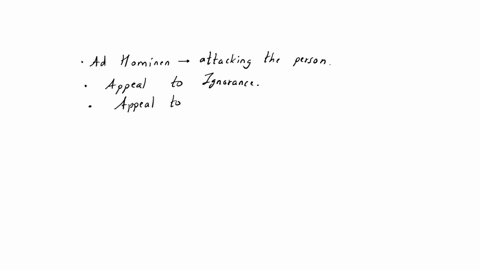 · Ad Hominen → attacking the person.
· Appeal to Ignorance.
· Appeal to